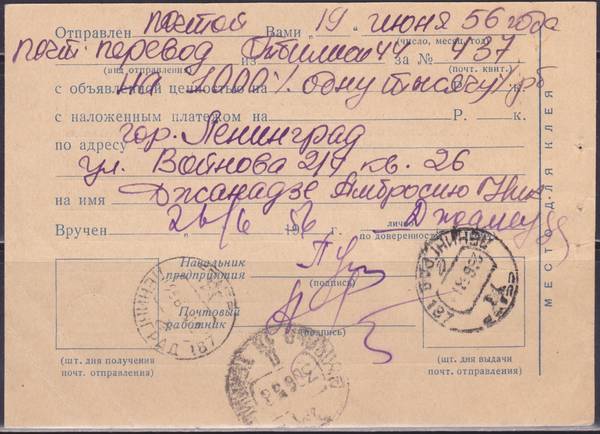 Отправлен почтой Вами 19 июня 56 года
(число, месяц, год)
почт перевод из 44 за № 437
(вид отправления) (почт. квит.)
с объявленной ценностью на на 1000 одну тысячу рб
с наложенным платежом на Р. к.
по адресу гор. Ленинград
ул. Войнова кв. 26
на имя Джанадзе Амбросию Ник
Вручен 26/6 56 г. лично
по доверенности
МЕСТО ДЛЯ КЛЕЯ
Начальник
предприятия
(подпись)
Почтовый
работник
(подпись)
(шт. дня получения
почт. отправления)
(шт. дня выдачи
почт. отправления)
ЛЕНИНГРАД 187